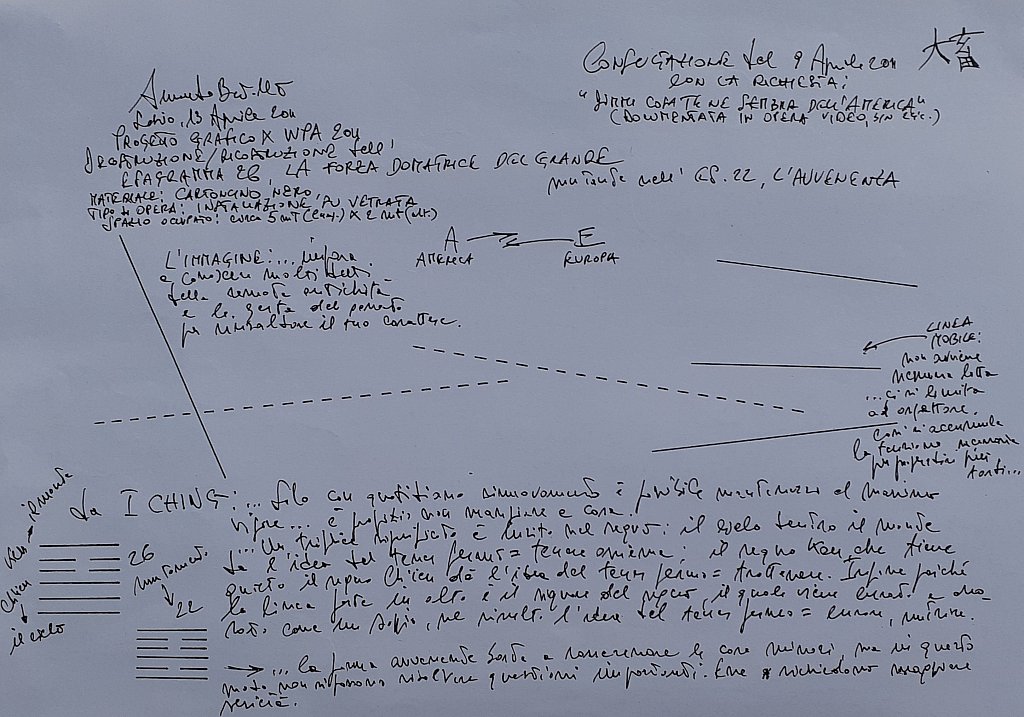 Consultazione del 9 Aprile 2011
大畜
con la richiesta:
"dimmi cosa te ne sembra dell'America"
(documentata in opera video, sin etc.)
13 Aprile 2011
Progetto grafico x WPA 2011
Destruzione/Ricostruzione dell'
Esagramma 26, La forza domatrice del grande
mutante nell' Es. 22, L'avvenenza
Materiale: cartoncino nero
Tipo di opera: installazione su vetrata
Spazio occupato: circa 5 mt (lung.) x 2 mt (alt.)
A E
America Europa
L'immagine: ... impara
a conoscere molti detti
della remota antichità
e le gesta del passato
per rinsaldare il tuo carattere.
Linea
mobile:
non avviene
nessuna lotta
... ci si limita
ad aspettare.
Così si accumula
la tensione necessaria
per progredire più
tardi...
Da I Ching: ... solo con quotidiano rinnovamento è possibile mantenersi al massimo
vigore ... è propizio non mangiare a casa.
... Un triplice significato è insito nel segno: il cielo dentro il monte
dà l'idea del tener fermo = tenere assieme; il segno Ken, che tiene
quieto il segno Chien dà l'idea del tener fermo = trattenere. Infine poiché
la linea forte in alto è il signore del segno, il quale viene onorato e
come un savio, ne risulta l'idea del tener fermo = curare, nutrire.
Ken → il monte
Chien → il cielo
26
mutante
22
→ ... la forma avvenente basta a rasserenare le cose minori, ma in questo
modo non si possono risolvere questioni importanti. Esse richiedono maggiore
serietà.